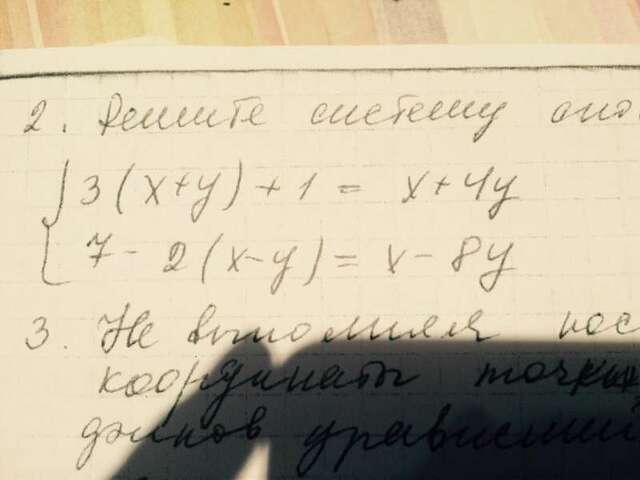 2. Решите систему
3(x+y)+1 = x+4y
7-2(x-y) = x-8y
3. Не выполняя пос
координаты точки
уравнений